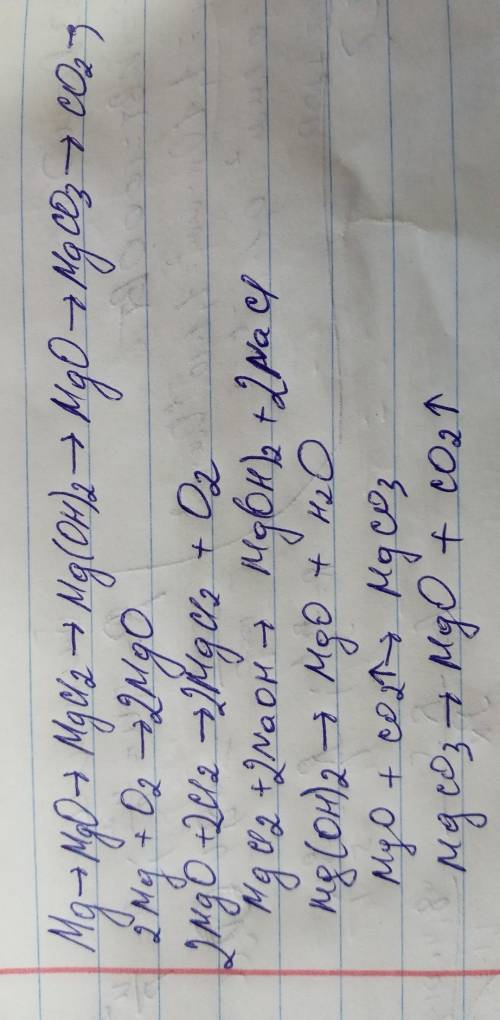 Mg → MgO → MgCl2 → Mg(OH)2 → MgO → MgCO3 → CO2 →
2Mg + O2 → 2MgO
2MgO + 2Cl2 → 2MgCl2 + O2
MgCl2 + 2NaOH → Mg(OH)2 + 2NaCl
Mg(OH)2 → MgO + H2O
MgO + CO2↑ → MgCO3
MgCO3 → MgO + CO2↑